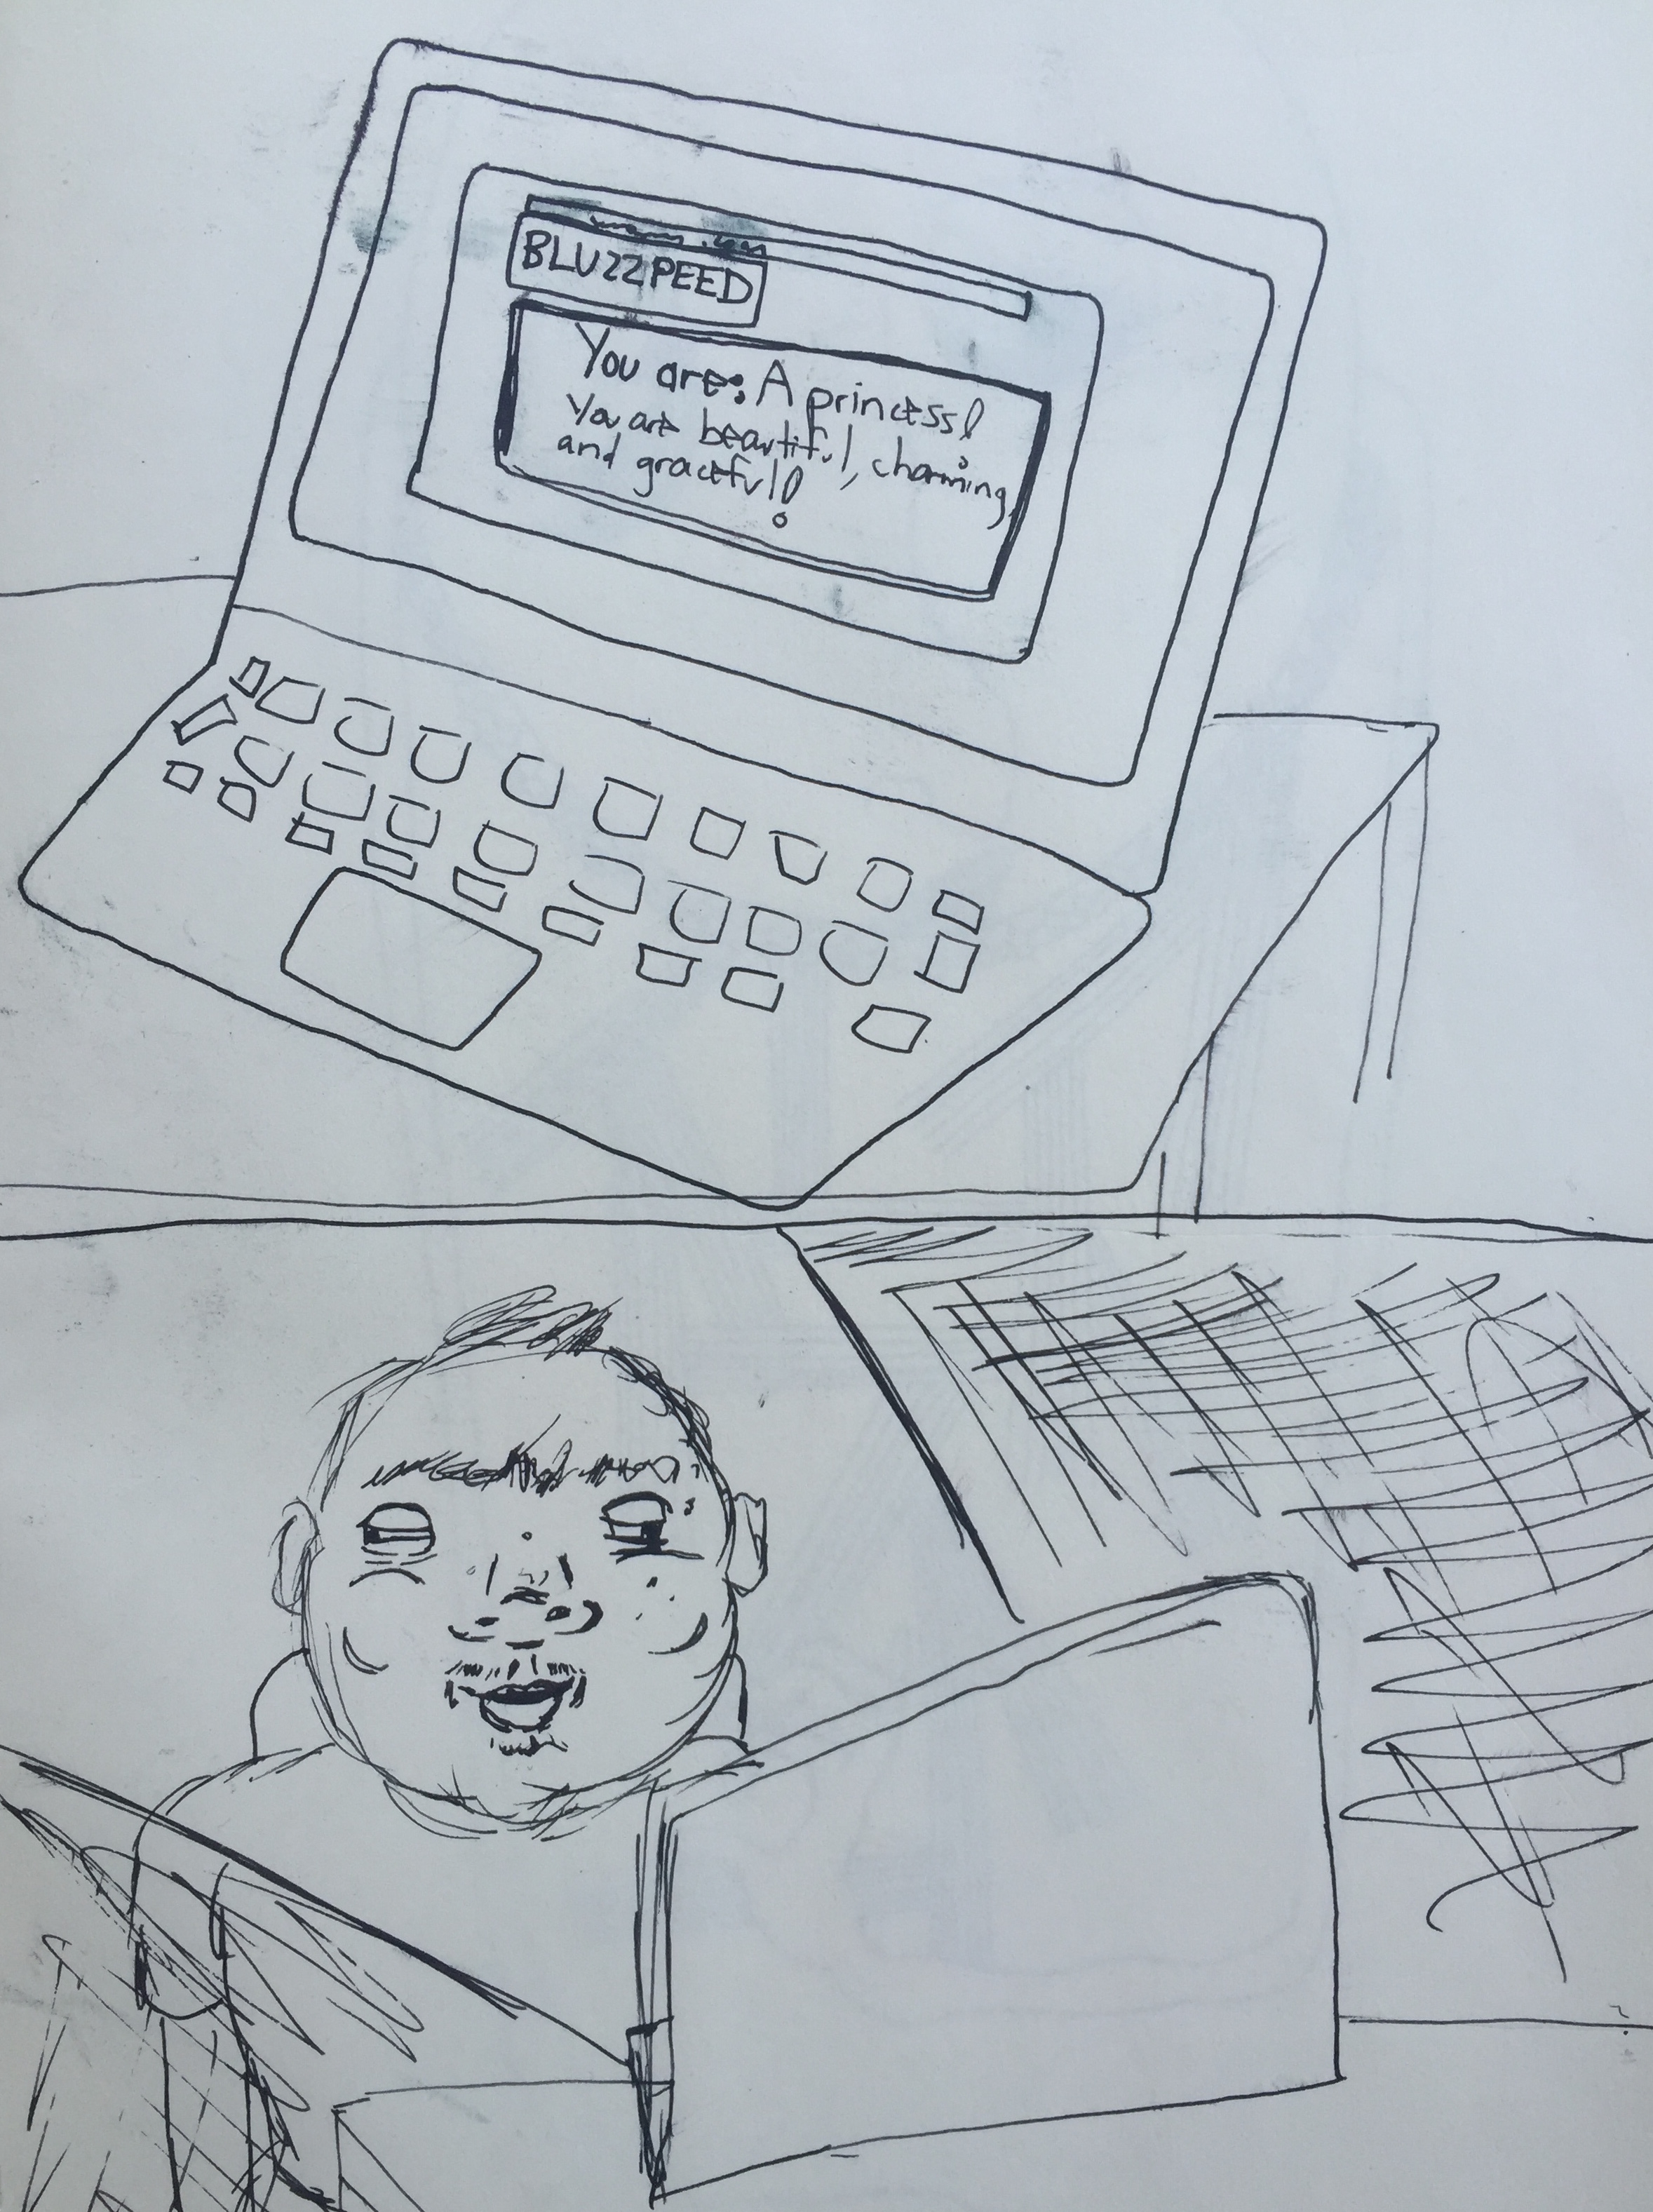 BLUZZPEED
You are: A princess!
You are beautiful, charming,
and graceful!